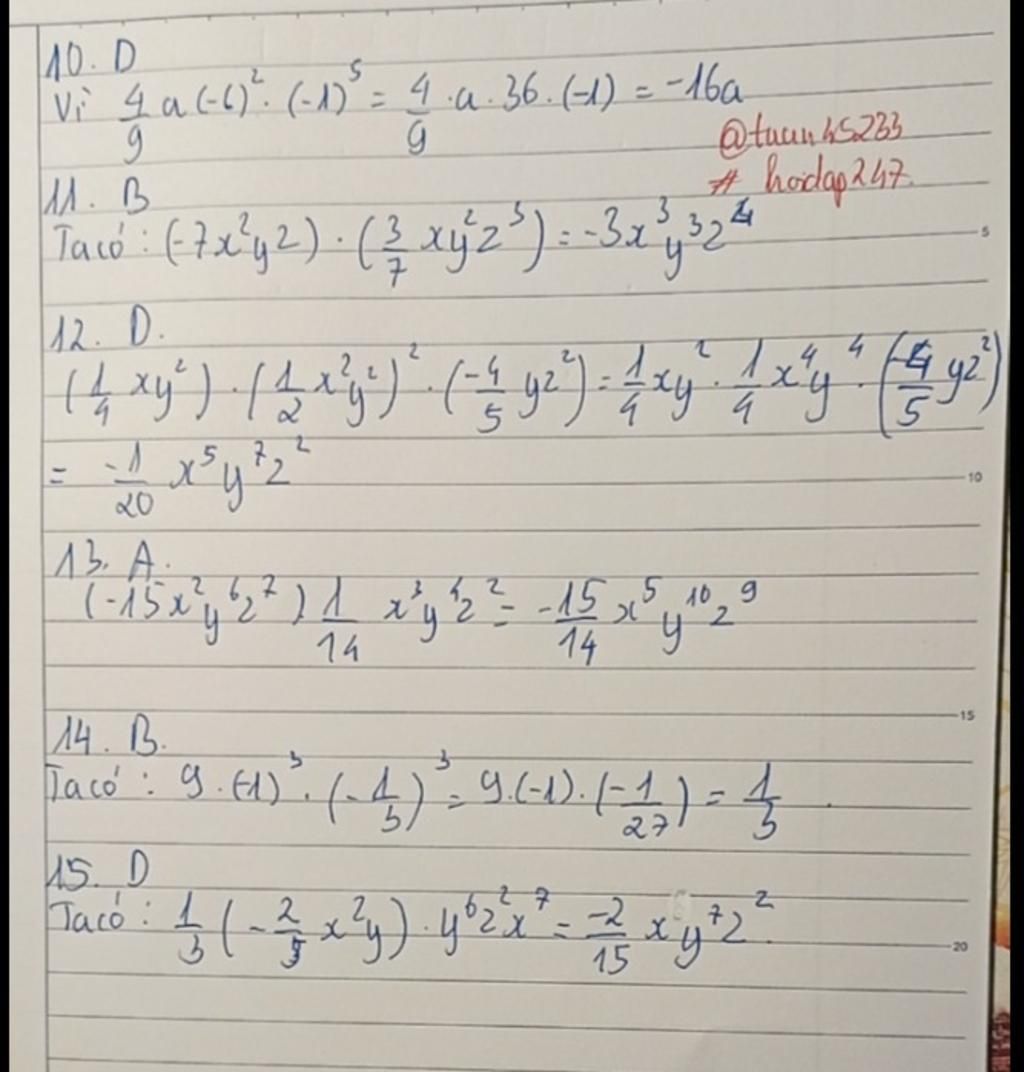 10. D
Vì 4/9 a(-6)² · (-1)⁵ = 4/9 · a · 36 · (-1) = -16a
@tuun45233
# hoidap247.
11. B
Ta có : (-7x²yz) · (3/7 xy²z³) = -3x³y³z⁴
5
12. D.
(1/4 xy²) · (1/2 x²y²)² · (-4/5 yz²) = 1/4 xy² · 1/4 x⁴y⁴ · (-4/5 yz²)
= -1/20 x⁵y⁷z²
10
13. A.
(-15x²y⁶z⁷) 1/14 x³y⁴z² = -15/14 x⁵y¹⁰z⁹
15
14. B.
Ta có : 9 · (-1)³ · (-1/3)³ = 9.(-1) · (-1/27) = 1/3 .
15. D
Ta có : 1/3 (-2/5 x²y) · y⁶z²x⁷ = -2/15 x y⁷z² .
20